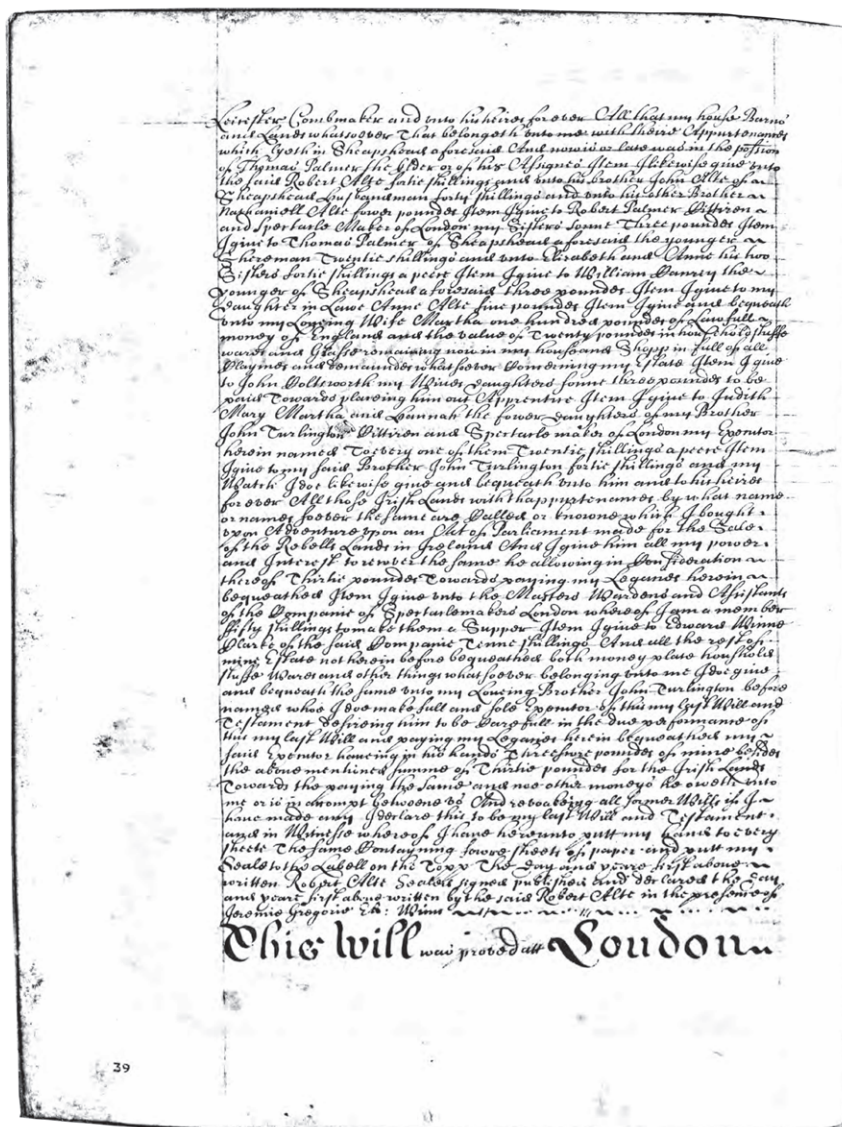 Leicester Combmaker and unto his heires for ever All that my house Barne
and Lands whatsoever That belongeth unto me with theire Appurtenances
which lyeth in Sheapshead aforesaid And now is or late was in the possion
of Thomas Palmer the Elder or of his Assignes Item I likewise give unto
the said Robert Alte fortie shillings and unto his brother John Alte of
Sheapshead husbandman forty shillings and unto his other Brother
Nathaniell Alte fower poundes Item I give to Robert Palmer Cittizen
and Spectacle Maker of London my Sisters sonne Three poundes Item
I give to Thomas Palmer of Sheapshead aforesaid the younger
Twentie shillings and unto Elizabeth and Anne his two
Sisters fortie shillings a peece Item I give to William the
younger of Sheapshead aforesaid three poundes Item I give to my
daughter in Lawe Anne Alte five poundes Item I give and bequeath
unto my Loveing Wife Martha one hundred poundes of Lawfull
money of England and the value of Twenty poundes in houshold stuffe
wares and Glasse remaining now in my house and Shopp in full of all
Claymes and demaundes whatsoever Concerning my Estate Item I give
to John my Wives daughters sonne three poundes to be
paid Towards placeing him out Apprentice Item I give to Judith
Mary Martha and Hannah the fower daughters of my Brother
John Turlington Cittizen and Spectacle maker of London my Executor
herein named To every one of them Twentie shillings a peece Item
I give to my said Brother John Turlington fortie shillings and my
Watch I doe likewise give and bequeath unto him and to his heires
for ever All those Irish Lands with thappurtenances by what name
or names soever the same are Called or knowne which I bought
upon Adventure upon an Act of Parliament made for the Sale
of the Rebells Lands in Ireland And I give him all my power
and Interest to recover the same he allowing in Consideration
thereof Thirtie poundes Towards paying my Legacies herein
bequeathed Item I give unto the Masters Wardens and Assistants
of the Companie of Spectaclemakers London whereof I am a member
ffifty shillings to make them a Supper Item I give to Edward Winne
Clarke of the said Companie Tenne shillings And all the rest of
mine Estate not herein before bequeathed both money plate houshold
stuffe Wares and other things whatsoever belonging unto me I doe give
and bequeath the same unto my Loveing Brother John Turlington before
named whoe I doe make full and sole Executor of this my last Will and
Testament desireing him to be Carefull in the due performance of
this my last Will and paying my Legacies herein bequeathed my
said Executor haveing in his hands Threescore poundes of mine besides
the above mentioned summe of Thirtie poundes for the Irish Lands
Towards the paying the same and noe other moneys he oweth unto
me or is in accompt betweene us And revoakeing all former Wills if I
have made any I declare this to be my last Will and Testament
and in Witnesse whereof I have hereunto putt my hand to every
sheete The same Contayning fowre sheets of paper and putt my
Seale to the Labell on the Topp The day and yeare first above
written Robert Alte Sealed signed published and declared the day
and yeare first above written by the said Robert Alte in the presence of
Jeremie Gregorie Ed: Winn
This Will was proved att London
39